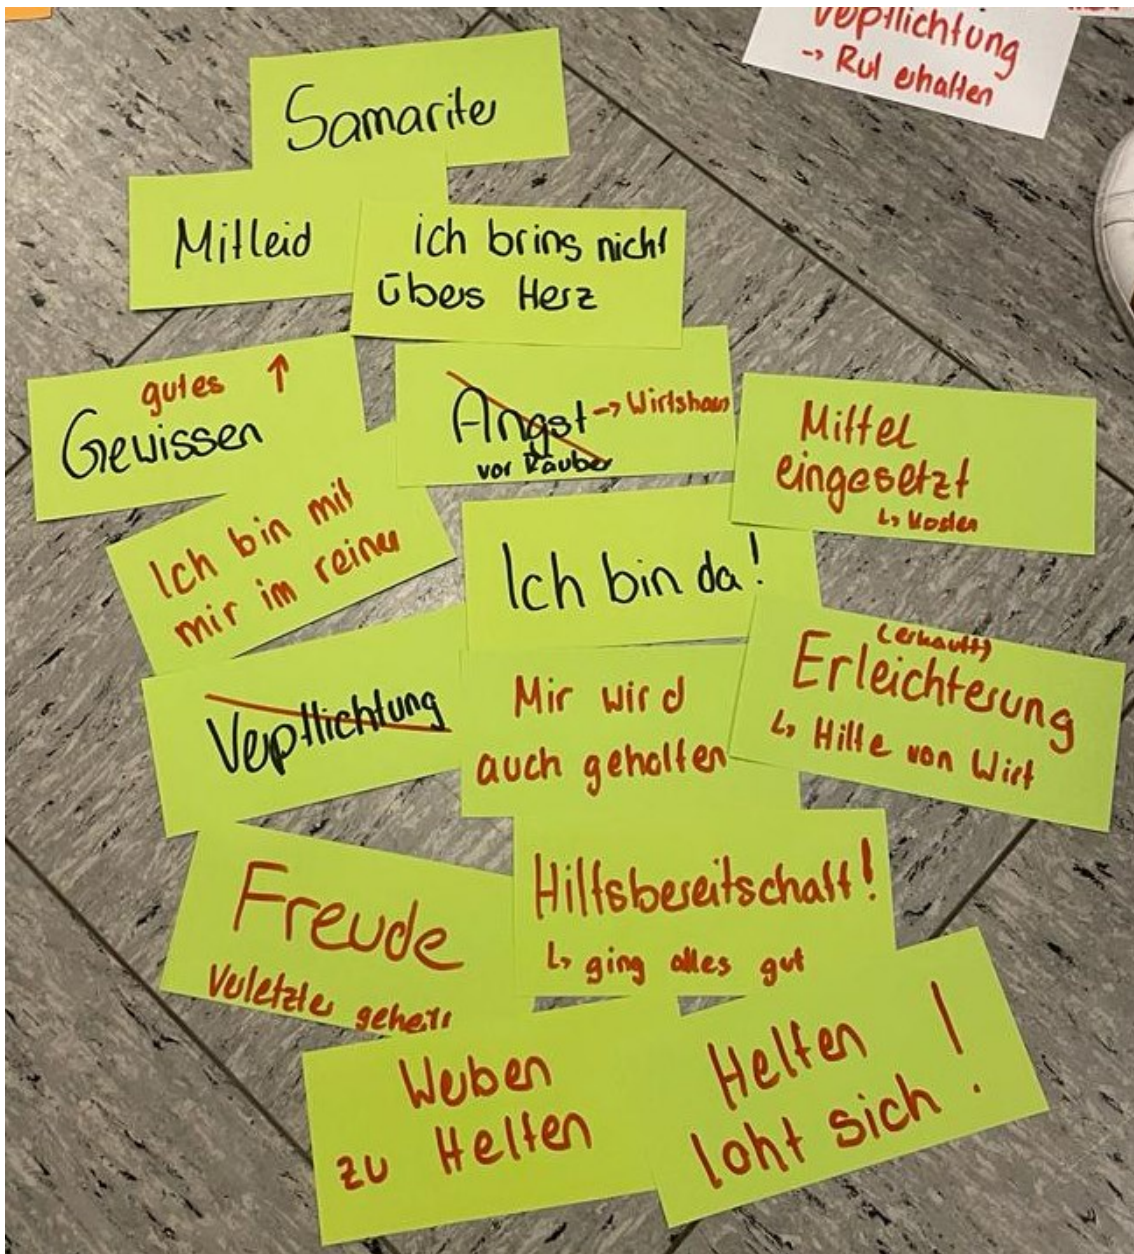 Verpflichtung
→ Ruf erhalten
Samariter
Mitleid
ich brings nicht
übers Herz
gutes ↑
Gewissen
Angst → Wirtshaus
vor Räuber
Mittel
eingesetzt
↳ Kosten
Ich bin mit
mir im reinen
Ich bin da!
Verpflichtung
Mir wird
auch geholfen
(erkauft)
Erleichterung
↳ Hilfe von Wirt
Freude
Verletzter geheilt
Hilfsbereitschaft!
↳ ging alles gut
Werben
zu Helfen
Helfen
loht sich!